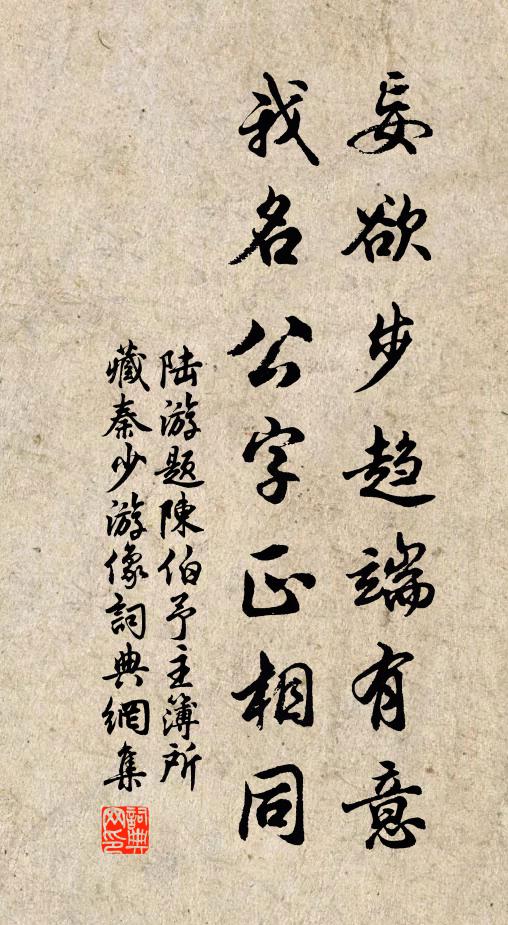 妄欲步趨端有意
我名公字正相同
陸游題陳伯予主簿所
藏秦少游像詞典網集
詞典
网印